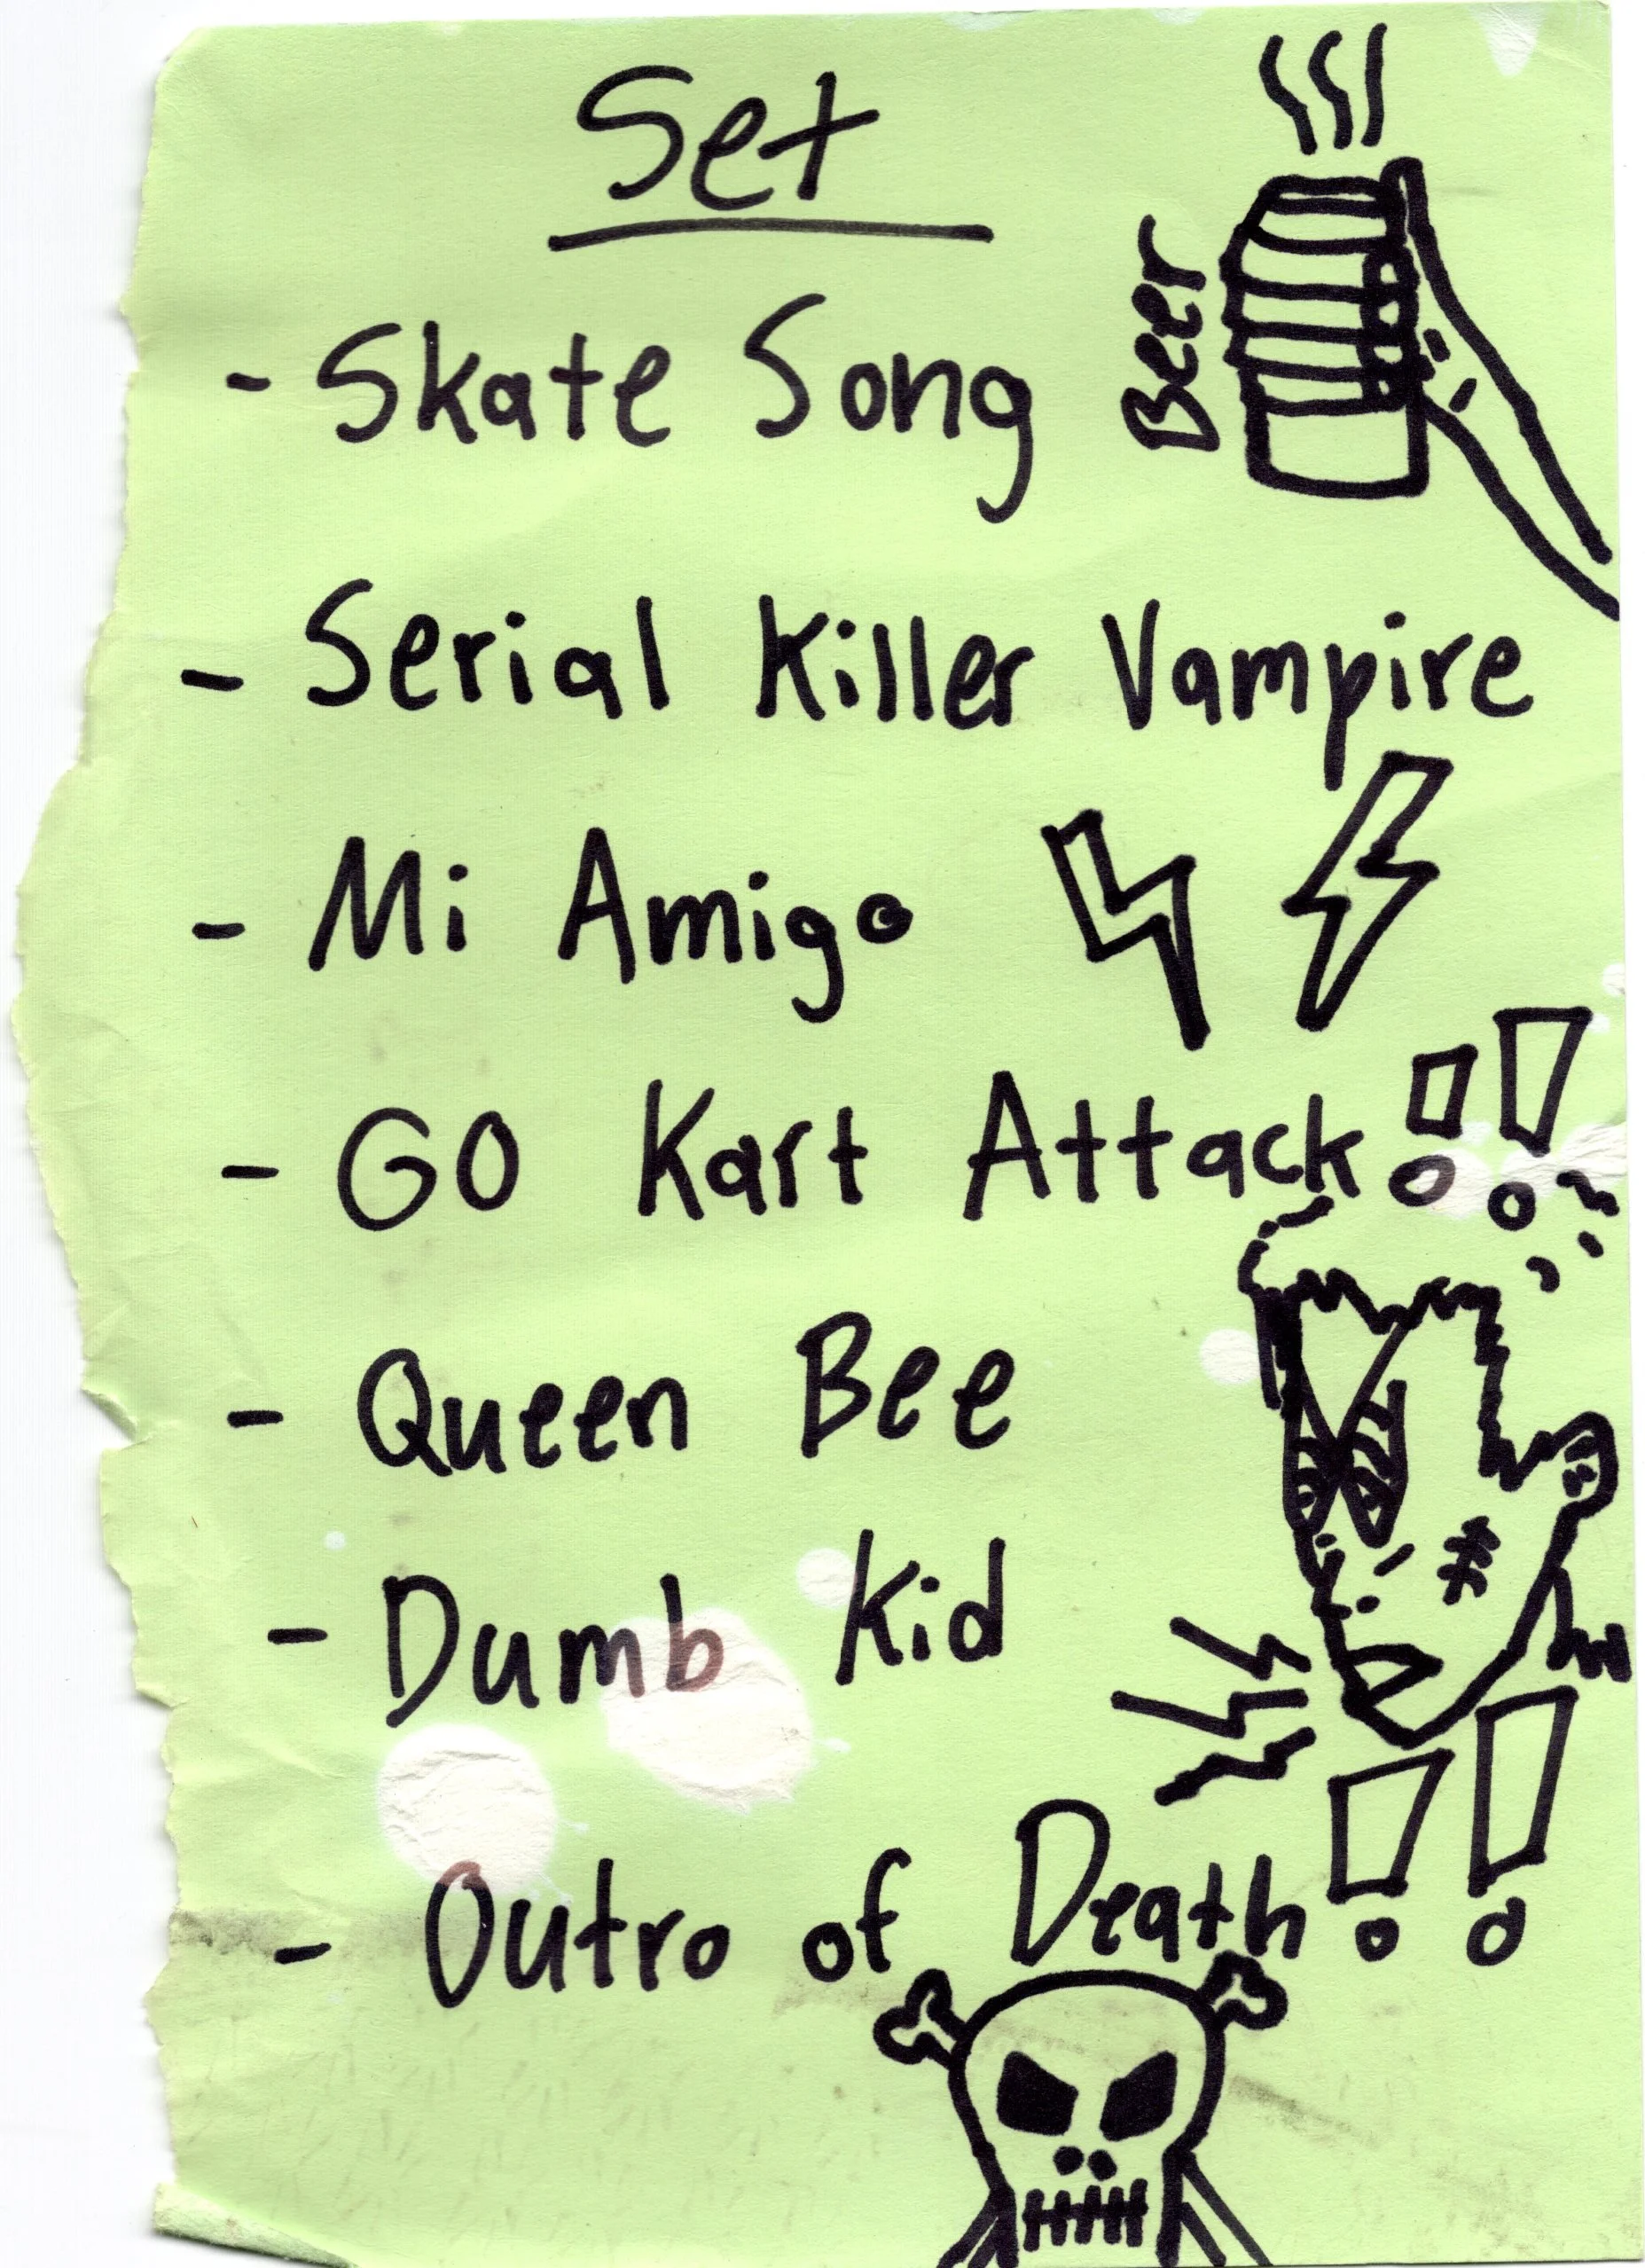 Set
Beer
- Skate Song
- Serial Killer Vampire
- Mi Amigo
- GO Kart Attack!!
- Queen Bee
- Dumb Kid
- Outro of Death!!